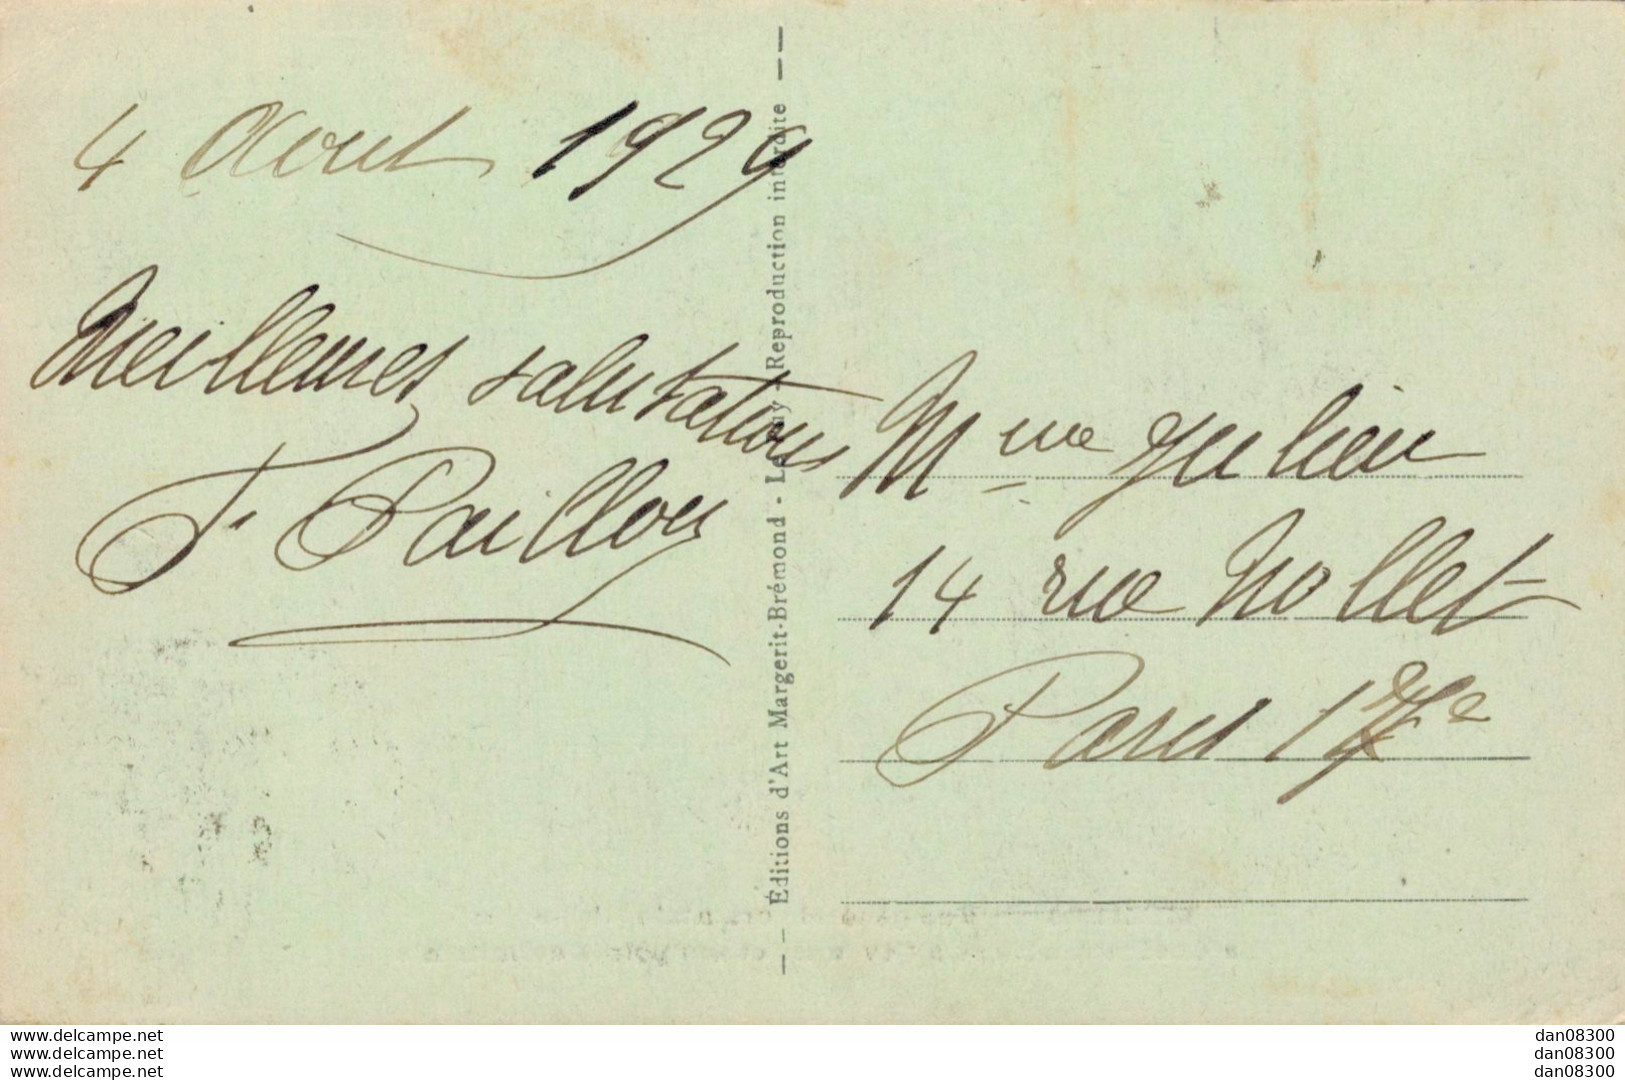 4 Aout 1929
Meilleures salutations
F. Paillou
Éditions d'Art Margerit-Brémond - Le Puy - Reproduction interdite
Mme Julien
14 rue Nollet
Paris 17e
www.delcampe.net
www.delcampe.net
www.delcampe.net
dan08300
dan08300
dan08300